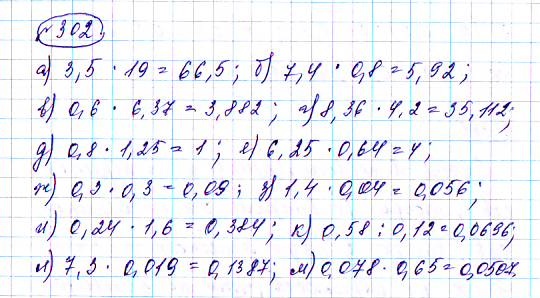 № 302.
а) 3,5 · 19 = 66,5; б) 7,4 · 0,8 = 5,92;
в) 0,6 · 6,37 = 3,882; г) 8,36 · 4,2 = 35,112;
д) 0,8 · 1,25 = 1; е) 6,25 · 0,64 = 4;
ж) 0,3 · 0,3 = 0,09; з) 1,4 · 0,04 = 0,056;
и) 0,24 · 1,6 = 0,384; к) 0,58 : 0,12 = 0,0696;
л) 7,3 · 0,019 = 0,1387; м) 0,078 · 0,65 = 0,0507.